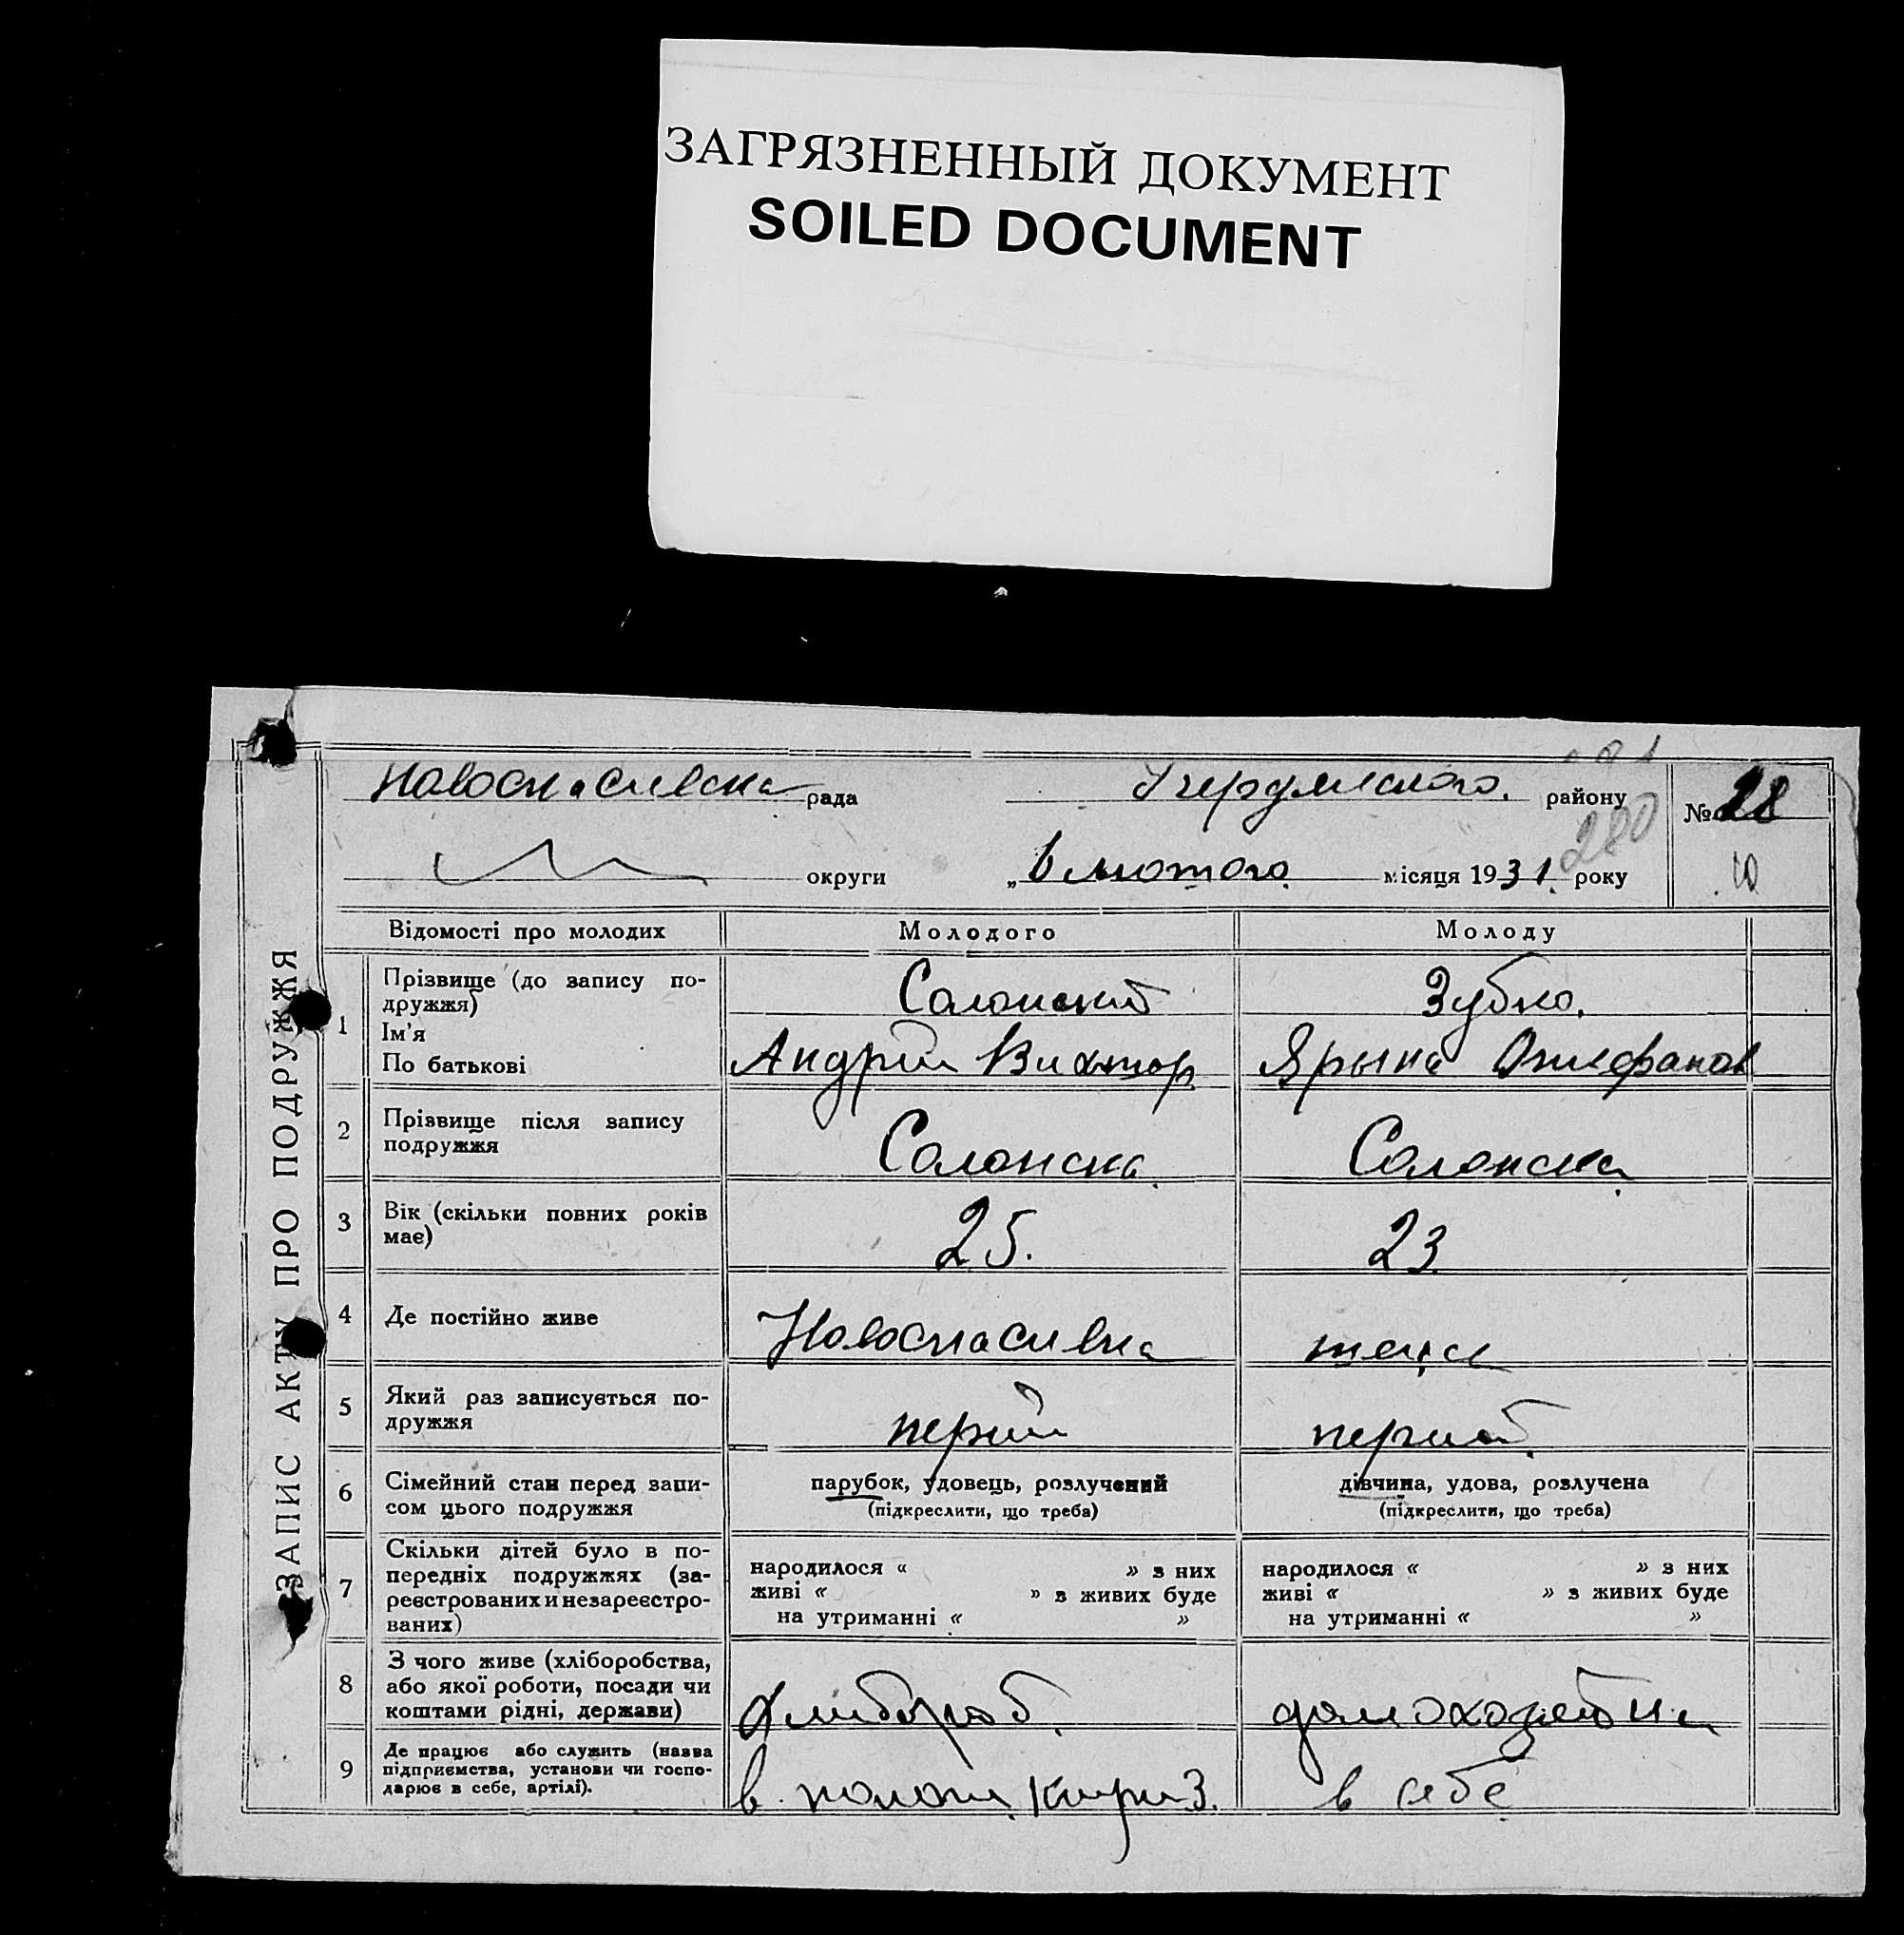 ЗАГРЯЗНЕННЫЙ ДОКУМЕНТ
SOILED DOCUMENT
ЗАПИС АКТУ ПРО ПОДРУЖЖЯ
Новоспасивска рада району № 28
280
округи „6 лютого місяця 1931. року
Відомості про молодих Молодого Молоду
1 Прізвище (до запису по-
дружжя) Солонский Зубко.
Ім'я
По батькові Андрій Виктор Ярына
2 Прізвище після запису
подружжя Солонска Солонска
3 Вік (скільки повних років
має) 25. 23
4 Де постійно живе Новоспасивка
5 Який раз записується по-
дружжя перший перший
6 Сімейний стан перед запи-
сом цього подружжя
парубок, удовець, розлучений
(підкреслити, що треба)
дівчина, удова, розлучена
(підкреслити, що треба)
7 Скільки дітей було в по-
передніх подружжях (за-
реєстрованих и незареєстро-
ваних)
народилося « » з них
живі « » з живих буде
на утриманні « »
народилося « » з них
живі « » з живих буде
на утриманні « »
8 З чого живе (хліборобства,
або якої роботи, посади чи
коштами рідні, держави)
хлибороб.
9 Де працює або служить (назва
підприємства, установи чи госпо-
дарює в себе, артілі).
в в себе